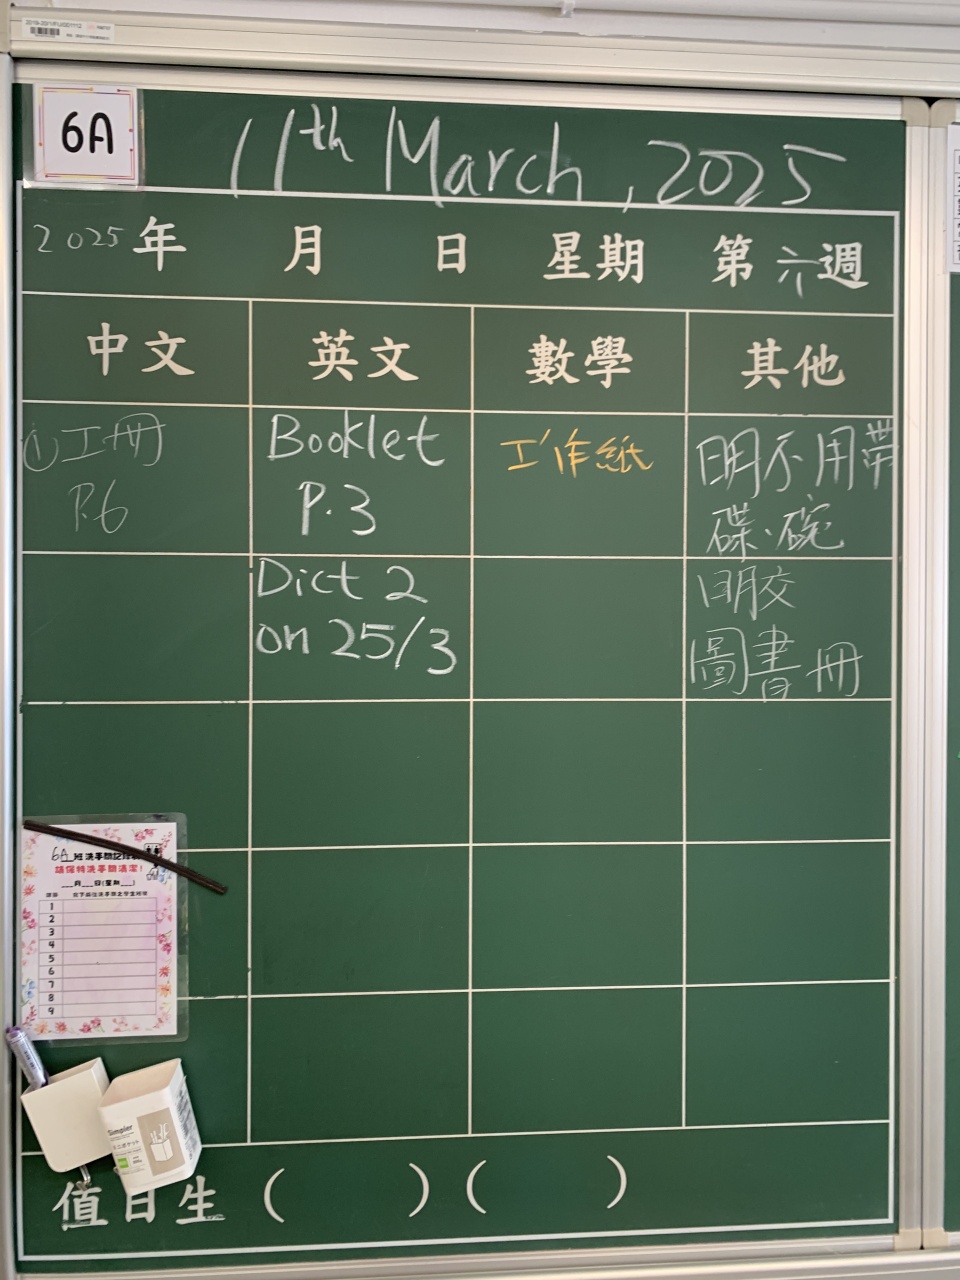 6A
11th March, 2025
2025 年 月 日 星期 第六週
中文 英文 數學 其他
①工冊
P.6
Booklet
P.3
工作紙
明不用帶
碟、碗
Dict 2
on 25/3
明交
圖書冊
6A 班洗手間記錄表
請保持洗手間清潔!
___月___日(星期___)
1
2
3
4
5
6
7
8
9
Simpler
值日生 ( ) ( )